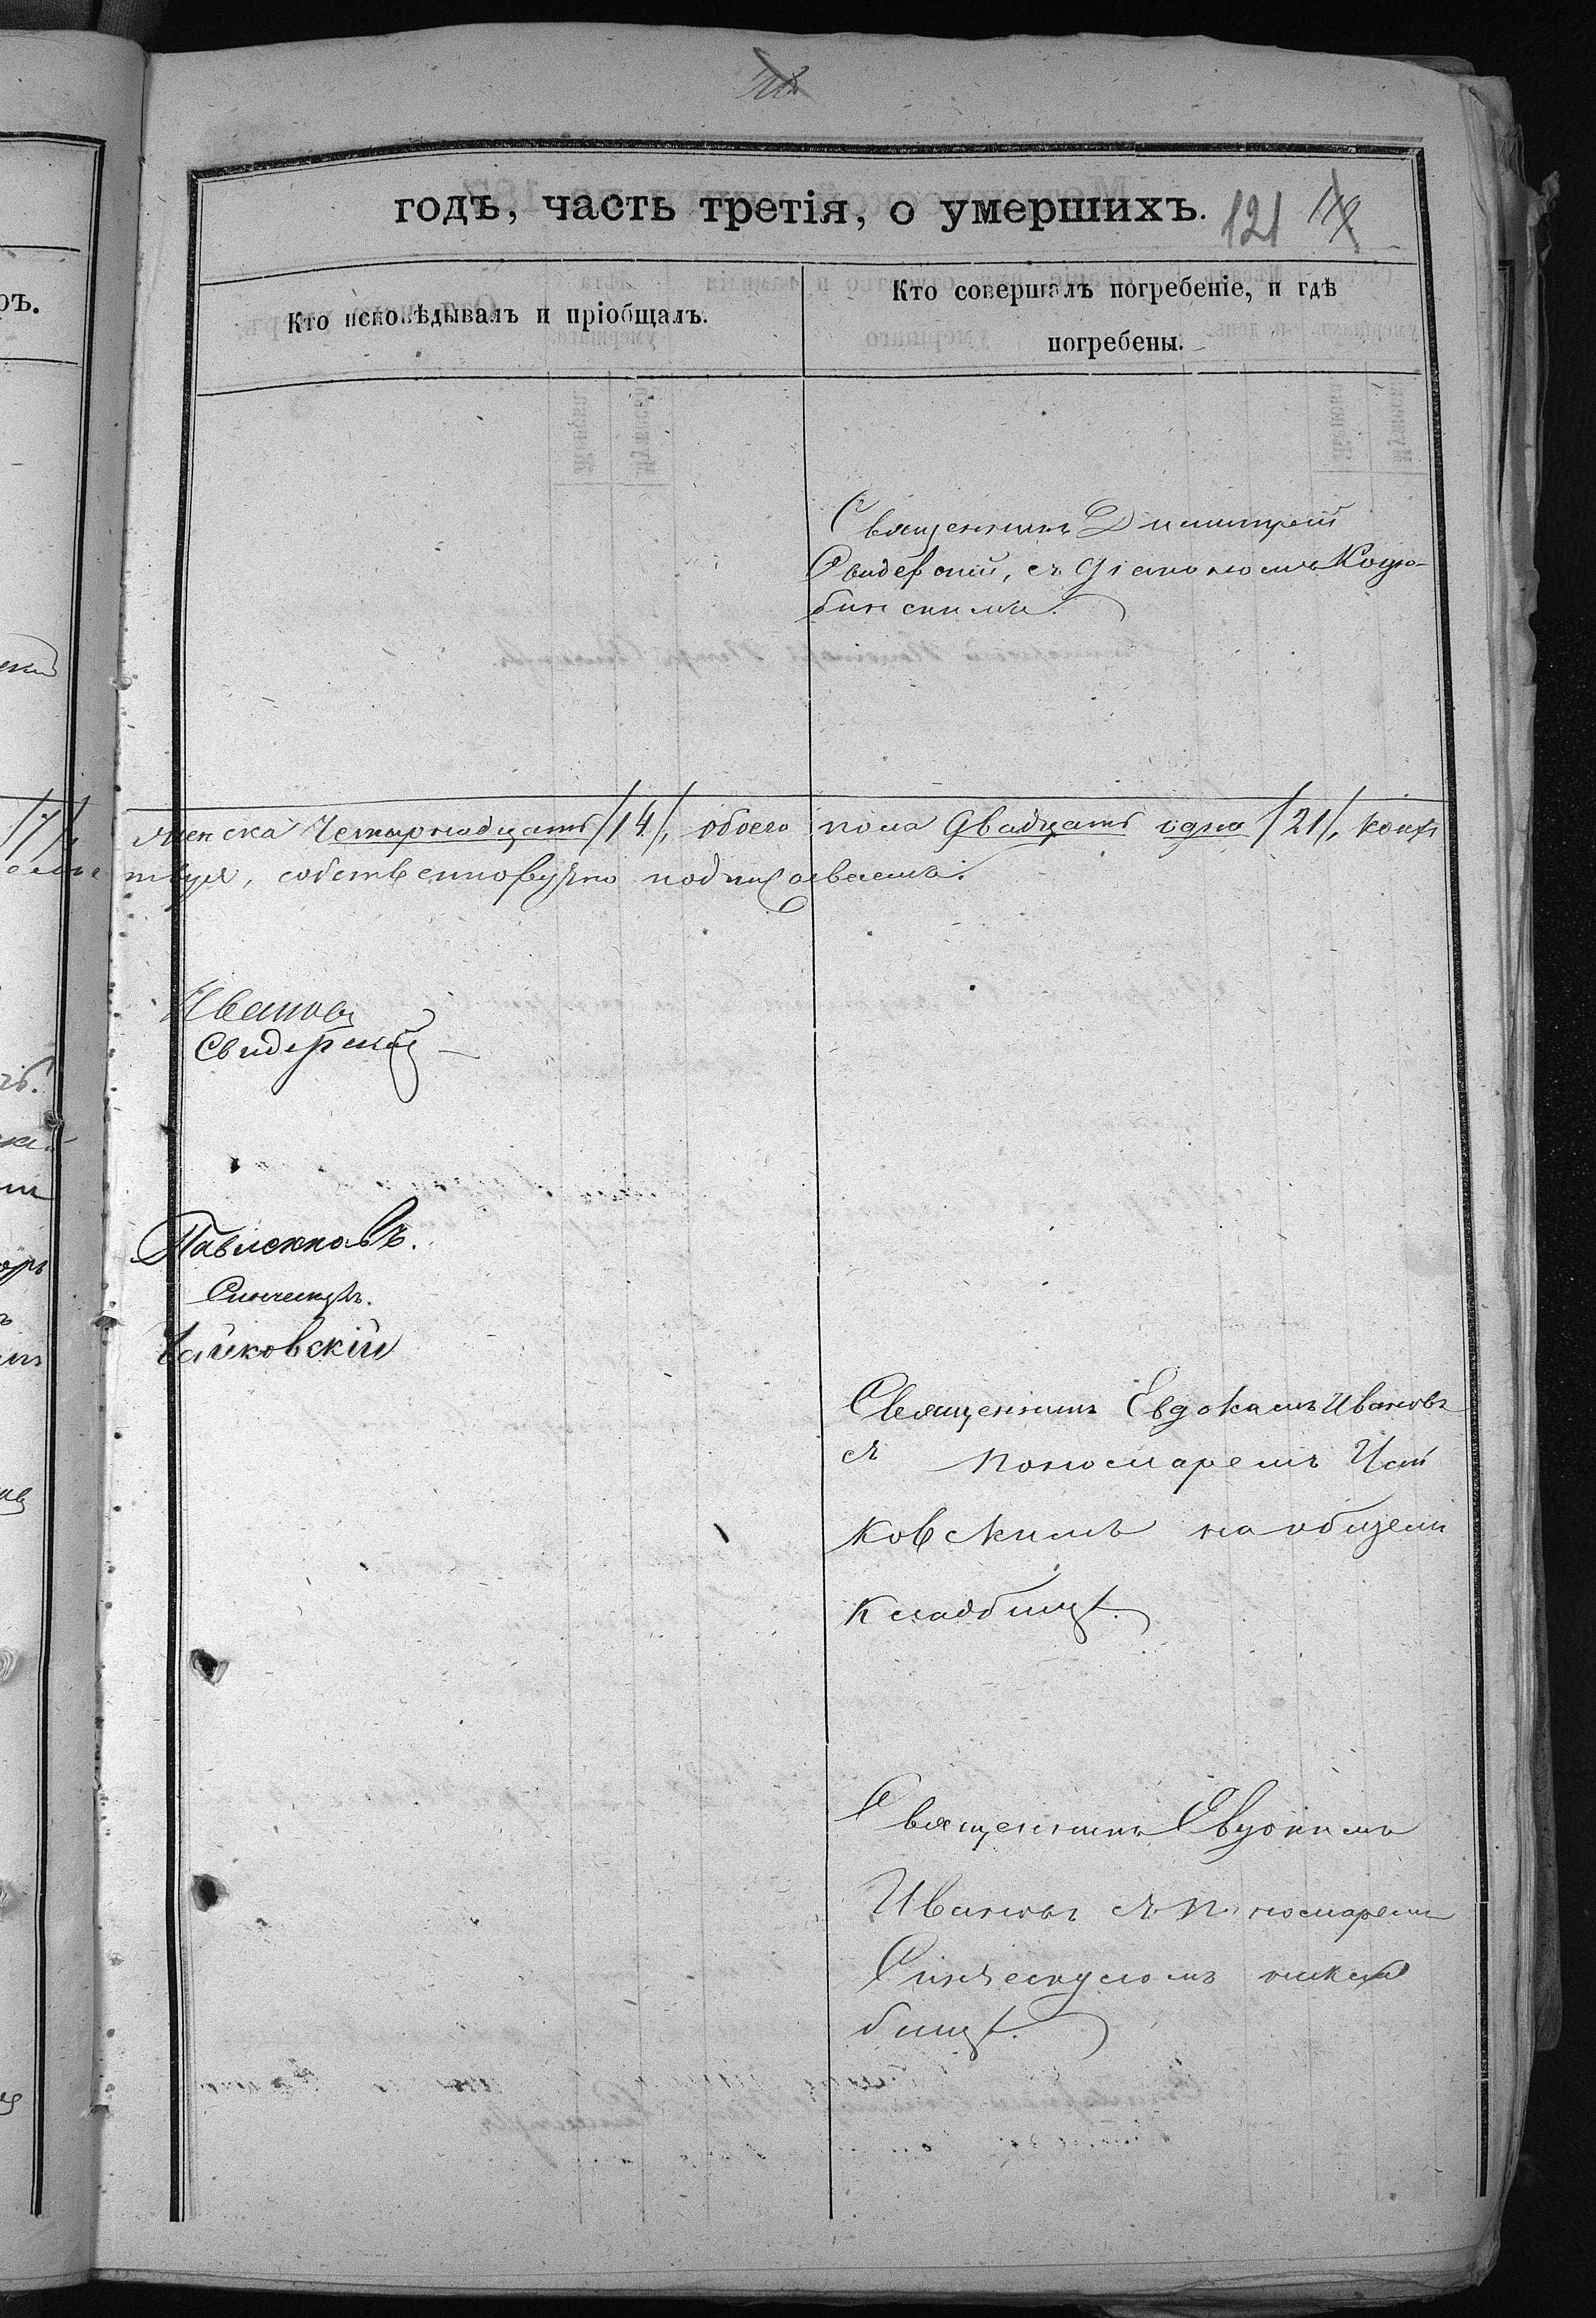 годъ, часть третія, о умершихъ.
121
Кто исповѣдывалъ и пріобщалъ.
Кто совершалъ погребеніе, и гдѣ
погребены.
Священникъ Димитрій
Свидерскій, съ Діакономъ Кодю-
бинскимъ.
женска Четырнадцать /14/, обоего пола Двадцать одна /21/,
твуя, собственноручно подписуемся.
Ивановъ
Свидерскій
Павленковъ.
Синческулъ.
Чайковскій
Священникъ Евдокимъ Ивановъ
съ пономаремъ Чай
ковскимъ на общемъ
кладбищѣ.
Священникъ Евдокимъ
Ивановъ съ пономаремъ
Синческуломъ
бищѣ.